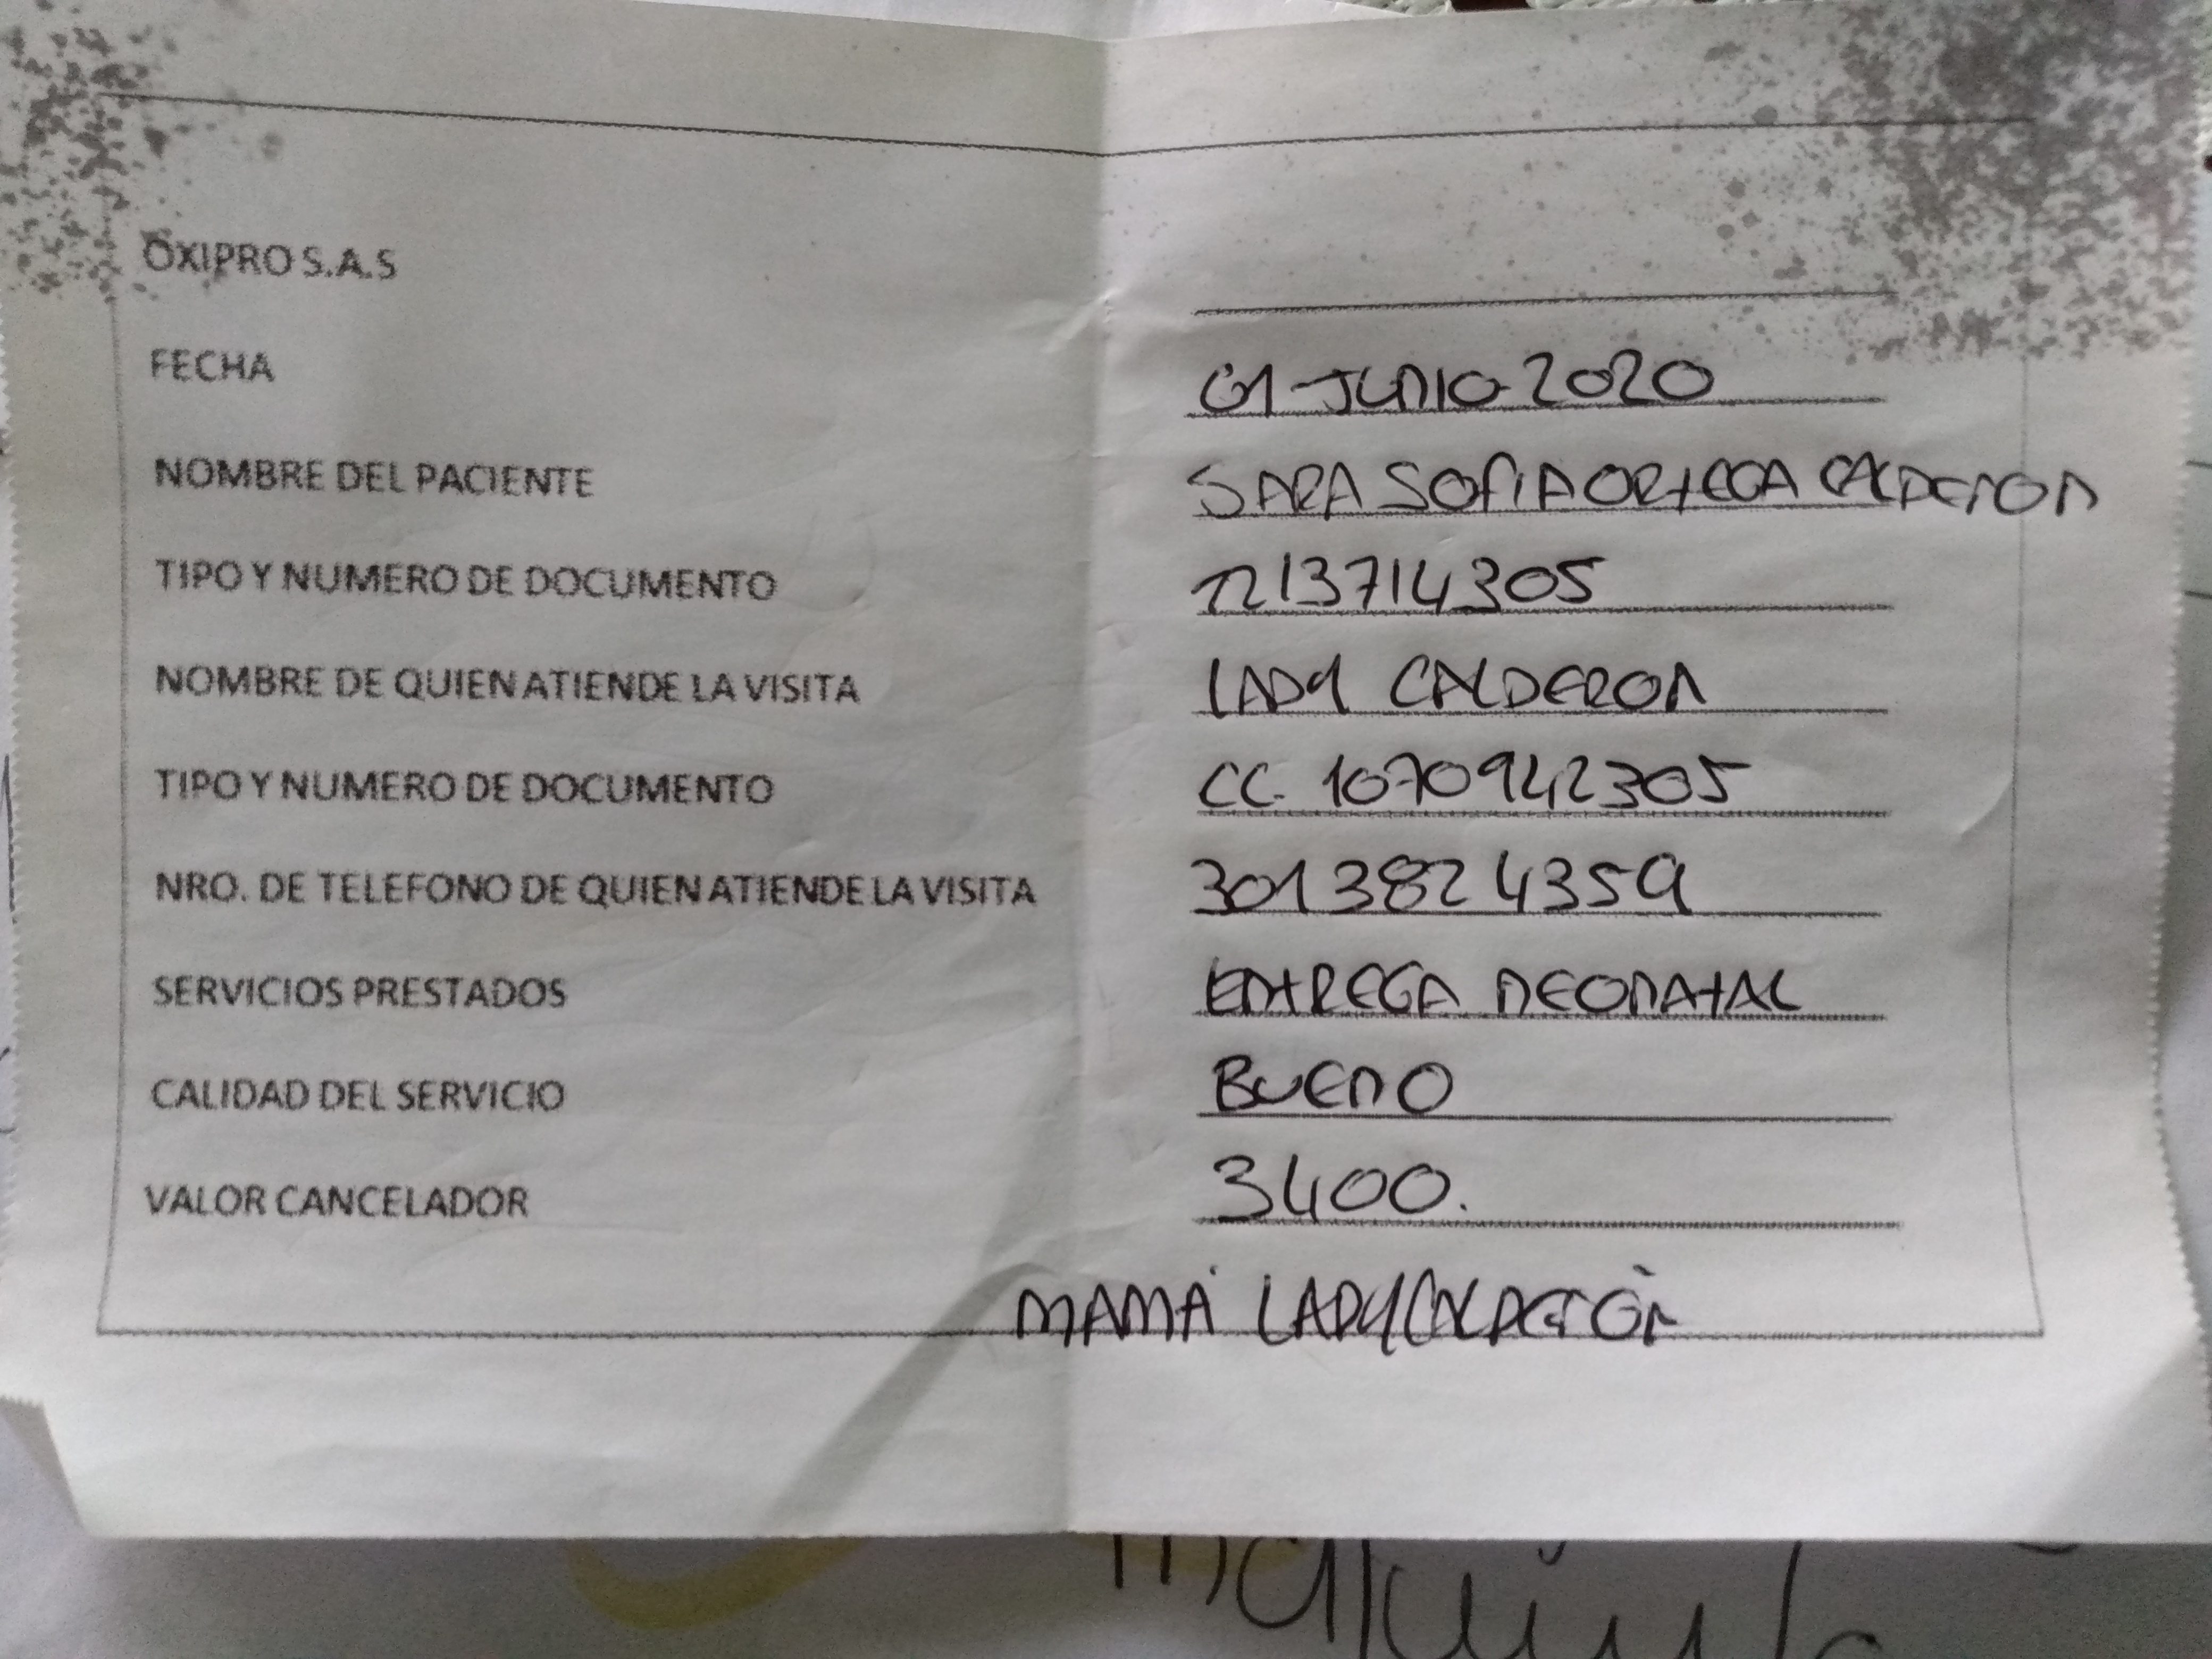 OXIPRO S.A.S
FECHA 01-JUNIO-2020
NOMBRE DEL PACIENTE SARA SOFIA ORTEGA CALDERON
TIPO Y NUMERO DE DOCUMENTO 1213714305
NOMBRE DE QUIEN ATIENDE LA VISITA LADY CALDERON
TIPO Y NUMERO DE DOCUMENTO CC. 1070942305
NRO. DE TELEFONO DE QUIEN ATIENDE LA VISITA 3013824359
SERVICIOS PRESTADOS ENTREGA NEONATAL
CALIDAD DEL SERVICIO BUENO
VALOR CANCELADOR 3400.
MAMÁ LADY CALDERÓN